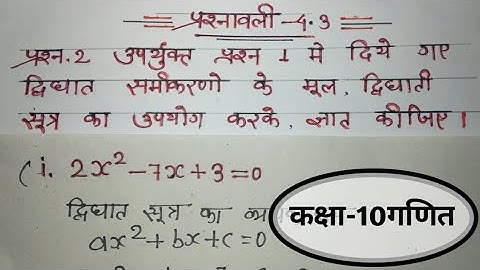 प्रश्नावली-4.3
प्रश्न.2 उपर्युक्त प्रश्न 1 मे दिये गए
द्विघात समीकरणो के मूल, द्विघाती
सूत्र का उपयोग करके, ज्ञात कीजिए।
(i. 2x²-7x+3=0
द्विघात सूत्र का
ax²+bx+c=0
कक्षा-10गणित